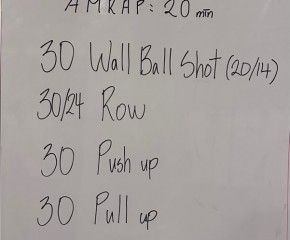 AMRAP: 20 min
30 Wall Ball Shot (20/14)
30/24 Row
30 Push up
30 Pull up